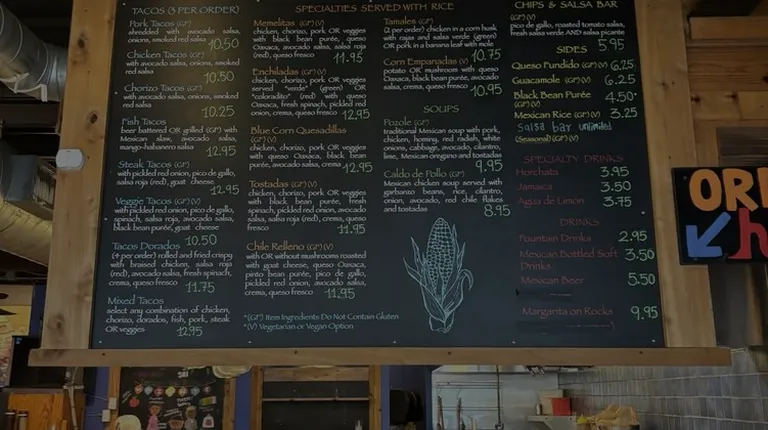 TACOS (3 PER ORDER)
Pork Tacos (GF)
shredded with avocado salsa,
onions, smoked red salsa 10.50
Chicken Tacos (GF)
with avocado salsa, onions, smoked
red salsa 10.50
Chorizo Tacos (GF)
with avocado salsa, onions, smoked
red salsa 10.25
Fish Tacos
beer battered OR grilled (GF) with
Mexican slaw, avocado salsa,
mango-habanero salsa 12.95
Steak Tacos (GF)
with pickled red onion, pico de gallo,
salsa roja (red), goat cheese 12.95
Veggie Tacos (GF)(V)
with pickled red onion, pico de gallo,
spinach, salsa roja, avocado salsa,
black bean purée, goat cheese
10.50
Tacos Dorados
(4 per order) rolled and fried crispy
with shredded chicken, salsa roja
(red), avocado salsa, fresh spinach,
crema, queso fresco 11.75
Mixed Tacos
select any combination of chicken,
chorizo, dorados, fish, pork, steak
OR veggies 12.95
SPECIALTIES SERVED WITH RICE
Memelitas (GF)(V)
chicken, chorizo, pork OR veggies
with black bean purée, queso
Oaxaca, avocado salsa, salsa roja
(red), queso fresco 11.95
Enchiladas (GF)(V)
chicken, chorizo, pork OR veggies
served "verde" (green) OR
"coloradito" (red) with queso
Oaxaca, fresh spinach, pickled red
onion, crema, queso fresco 12.95
Blue Corn Quesadillas
(GF)(V)
chicken, chorizo, pork OR veggies
with queso Oaxaca, black bean
purée, avocado salsa, crema 12.95
Tostadas (GF)(V)
chicken, chorizo, pork OR veggies
with black bean purée, fresh
spinach, pickled red onion, avocado
salsa, salsa roja (red), crema, queso
fresco 11.95
Chile Relleno (GF)(V)
with OR without mushrooms roasted
with goat cheese, queso Oaxaca,
pinto bean purée, pico de gallo,
pickled red onion, avocado salsa,
crema, queso fresco 11.95
*(GF) Item Ingredients Do Not Contain Gluten
*(V) Vegetarian or Vegan Option
Tamales (GF)(V)
(2 per order) chicken in a corn husk
with rajas and salsa verde (green)
OR pork in a banana leaf with mole
10.75
Corn Empanadas (GF)(V)
potato OR mushroom with queso
Oaxaca, black bean purée, avocado
salsa, crema, queso fresco 10.95
SOUPS
Pozole (GF)
traditional Mexican soup with pork,
chicken, hominy, red radish, white
onions, cabbage, avocado, cilantro,
lime, Mexican oregano and tostadas
9.95
Caldo de Pollo (GF)
Mexican chicken soup served with
garbanzo beans, rice, cilantro,
onion, avocado, red chile flakes
and tostadas 8.95
CHIPS & SALSA BAR
(GF)(V)
pico de gallo, roasted tomato salsa,
fresh salsa verde AND salsa picante
5.95
SIDES
Queso Fundido (GF)(V) 6.25
Guacamole (GF)(V) 6.25
Black Bean Purée 4.50
(GF)(V)
Mexican Rice (GF)(V) 3.25
Salsa bar unlimited
(Seasonal) (GF)(V)
SPECIALTY DRINKS
Horchata 3.95
Jamaica 3.50
Agua de Limon 3.75
DRINKS
Fountain Drinks 2.95
Mexican Bottled Soft 3.50
Drinks
Mexican Beer 5.50
Margarita on Rocks 9.95
OR
h